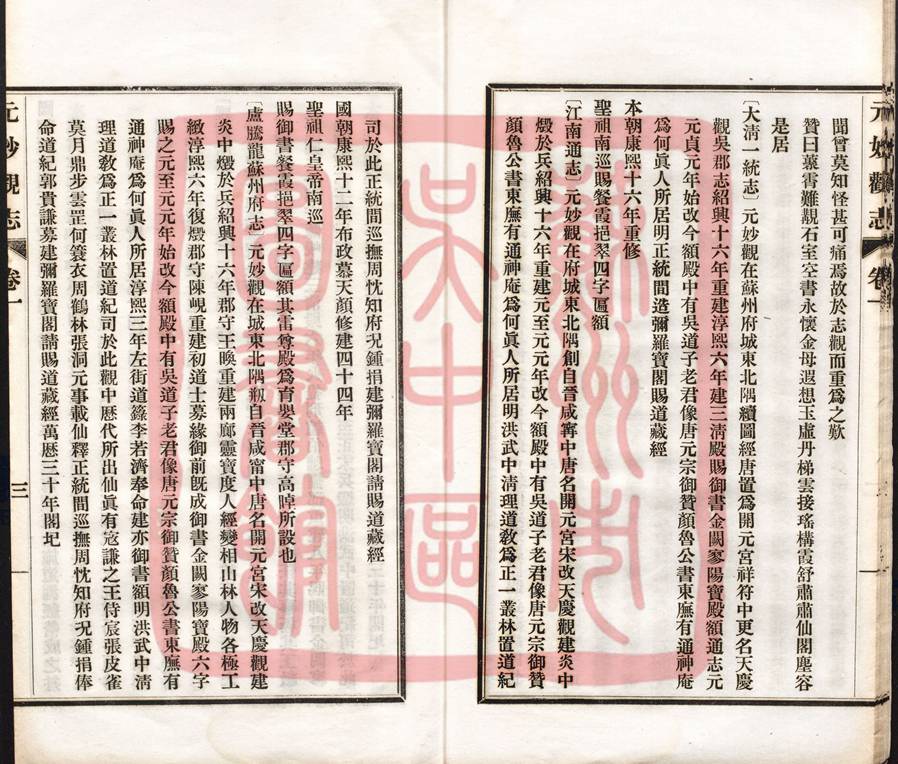 元妙觀志 卷一
聞曾莫知怪甚可痛焉故於志觀而重爲之歎
贊曰菉霄難覩石室空書永懷金母遐想玉虛丹梯雲接瑤構霞舒肅肅仙閣塵容
是居
〔大淸一統志〕元妙觀在蘇州府城東北隅續圖經唐置爲開元宮祥符中更名天慶
觀吳郡志紹興十六年重建淳熙六年建三淸殿賜御書金闕寥陽寶殿額通志元
元貞元年始改今額殿中有吳道子老君像唐元宗御贊顏魯公書東廡有通神庵
爲何眞人所居明正統間造彌羅寶閣賜道藏經
本朝康熙十六年重修
聖祖南巡賜餐霞挹翠四字匾額
〔江南通志〕元妙觀在府城東北隅創自晉咸寧中唐名開元宮宋改天慶觀建炎中
燬於兵紹興十六年重建元至元元年改今額殿中有吳道子老君像唐元宗御贊
顏魯公書東廡有通神庵爲何眞人所居明洪武中清理道敎爲正一叢林置道紀
司於此正統間巡撫周忱知府况鍾捐建彌羅寶閣請賜道藏經
國朝康熙十二年布政慕天顏修建四十四年
聖祖仁皇帝南巡
賜御書餐霞挹翠四字匾額其雷尊殿爲育嬰堂郡守高晫所設也
〔盧騰龍蘇州府志〕元妙觀在城東北隅剏自晉咸甯中唐名開元宮宋改天慶觀建
炎中燬於兵紹興十六年郡守王㬇重建兩廊靈寶度人經變相山林人物各極工
緻淳熙六年復燬郡守陳峴重建初道士募緣御前旣成御書金闕寥陽寶殿六字
賜之元至元元年始改今額殿中有吳道子老君像唐元宗御贊顏魯公書東廡有
通神庵爲何眞人所居淳熙三年左街道籙李若濟奉命建亦御書額明洪武中淸
理道敎爲正一叢林置道紀司於此觀中歷代所出仙眞有寇謙之王侍宸張皮雀
莫月鼎步雲罡何蓑衣周鶴林張洞元事載仙釋正統間巡撫周忱知府况鍾捐俸
命道紀郭貴謙募建彌羅寶閣請賜道藏經萬歷三十年閣圮
元妙觀志 卷一 三
蘇州市
吳中區
圖書館